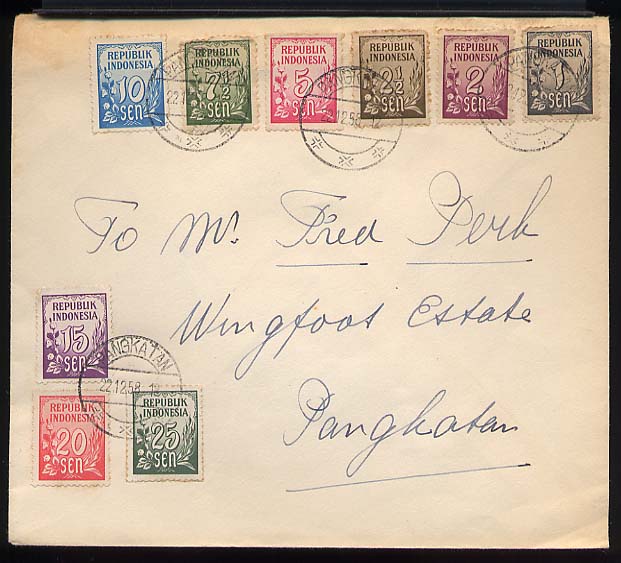 REPUBLIK INDONESIA 10 sen
REPUBLIK INDONESIA 7½ sen
REPUBLIK INDONESIA 5 sen
REPUBLIK INDONESIA 2½ sen
REPUBLIK INDONESIA 2 sen
REPUBLIK INDONESIA 1 sen
To Mr. Fred Perk
Wingfoot Estate
Pangkatan
REPUBLIK INDONESIA 15 sen
PANGKATAN
22.12.58
REPUBLIK INDONESIA 20 sen
REPUBLIK INDONESIA 25 sen